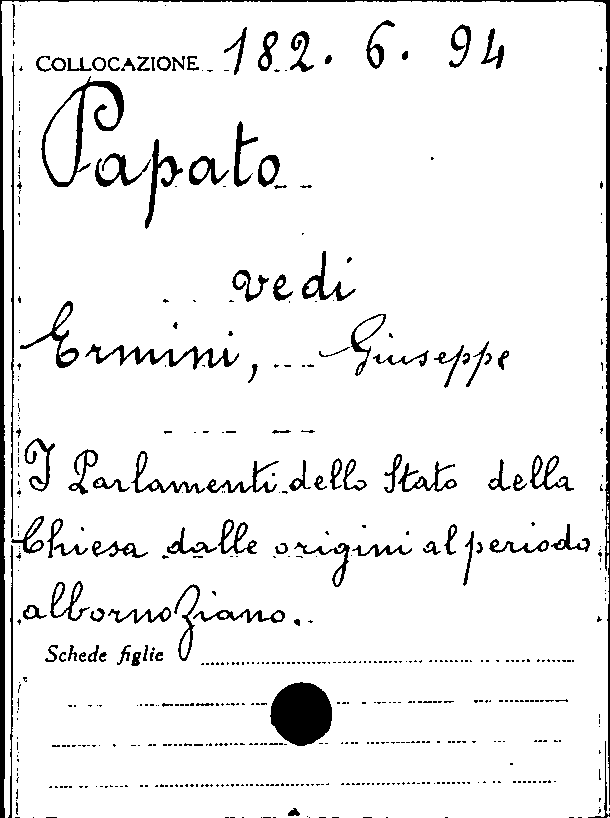 COLLOCAZIONE 182. 6. 94
Papato
vedi
Ermini, Giuseppe
I Parlamenti dello Stato della
Chiesa dalle origini al periodo
albornoziano.
Schede figlie